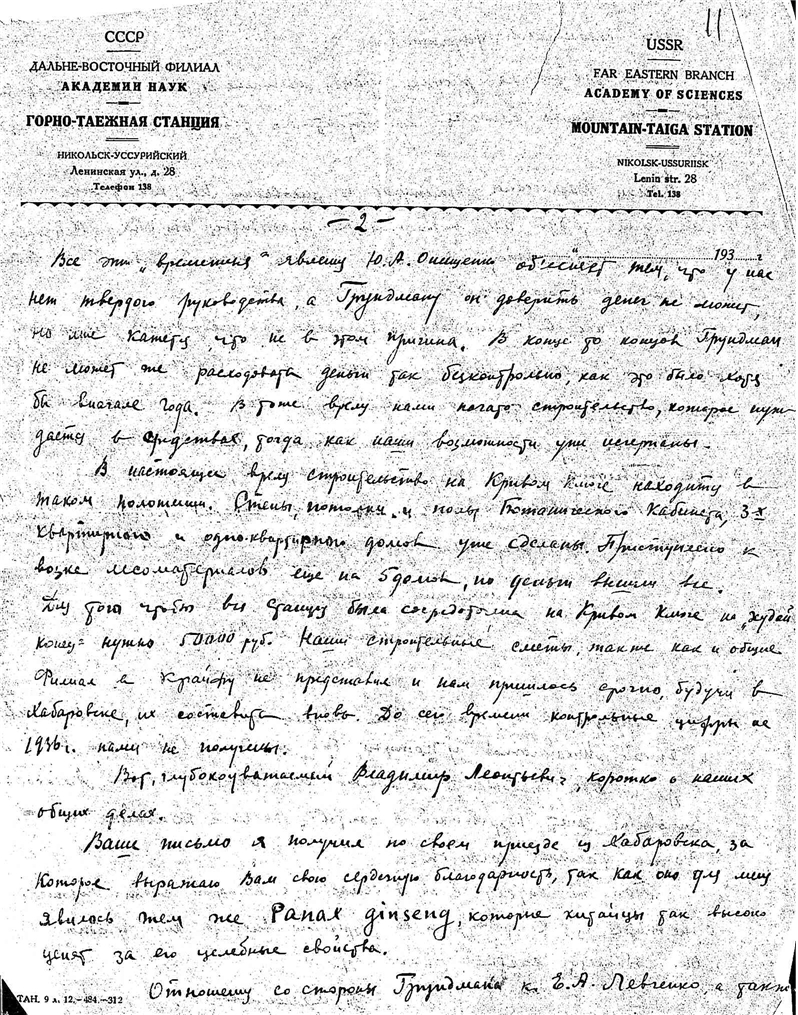 11
СССР
ДАЛЬНЕ-ВОСТОЧНЫЙ ФИЛИАЛ
АКАДЕМИИ НАУК
ГОРНО-ТАЕЖНАЯ СТАНЦИЯ
НИКОЛЬСК-УССУРИЙСКИЙ
Ленинская ул., д. 28
Телефон 138
USSR
FAR EASTERN BRANCH
ACADEMY OF SCIENCES
MOUNTAIN-TAIGA STATION
NIKOLSK-USSURIISK
Lenin str. 28
Tel. 138
- 2 -
193 г
Все эти „временные“ явления Ю.А. Онищенко объясняет тем, что у нас
нет твердого руководства, а Грундману он доверить денег не может,
но мне кажется что не в этом причина. В конце то концов Грундман
не может же расходовать деньги так безконтрольно, как это было хотя
бы вначале года. В тоже время нами начато строительство, которое нуж-
дается в средствах, тогда как наши возможности уже исчерпаны.
В настоящее время строительство на Кривом Ключе находится в
таком положении. Стены, потолки и полы Ботанического Кабинета, 3х
квартирного и одно-квартирного домов уже сделаны. Приступлено к
возке лесоматериалов еще на 5 домов, но деньги вышли все.
Для того чтобы вся Станция была сосредоточена на Кривом Ключе на „худой
конец“ нужно 50000 руб. Наши строительные сметы, также как и общие
Филиал в не представил и нам пришлось срочно, будучи в
Хабаровске, их составить вновь. До сего времени контрольные цифры на
1936 г. нами не получены.
Вот, глубокоуважаемый Владимир Леонтьевич, коротко о наших
общих делах.
Ваше письмо я получил по своем приезде из Хабаровска, за
которое выражаю Вам свою сердечную благодарность, так как оно для меня
явилось тем же Panax ginseng, которые китайцы так высоко
ценят за его целебные свойства.
Отношения со стороны Грундмана к Е.А. Левченко, а также
ТАН. 9 л. 12.-484.-312